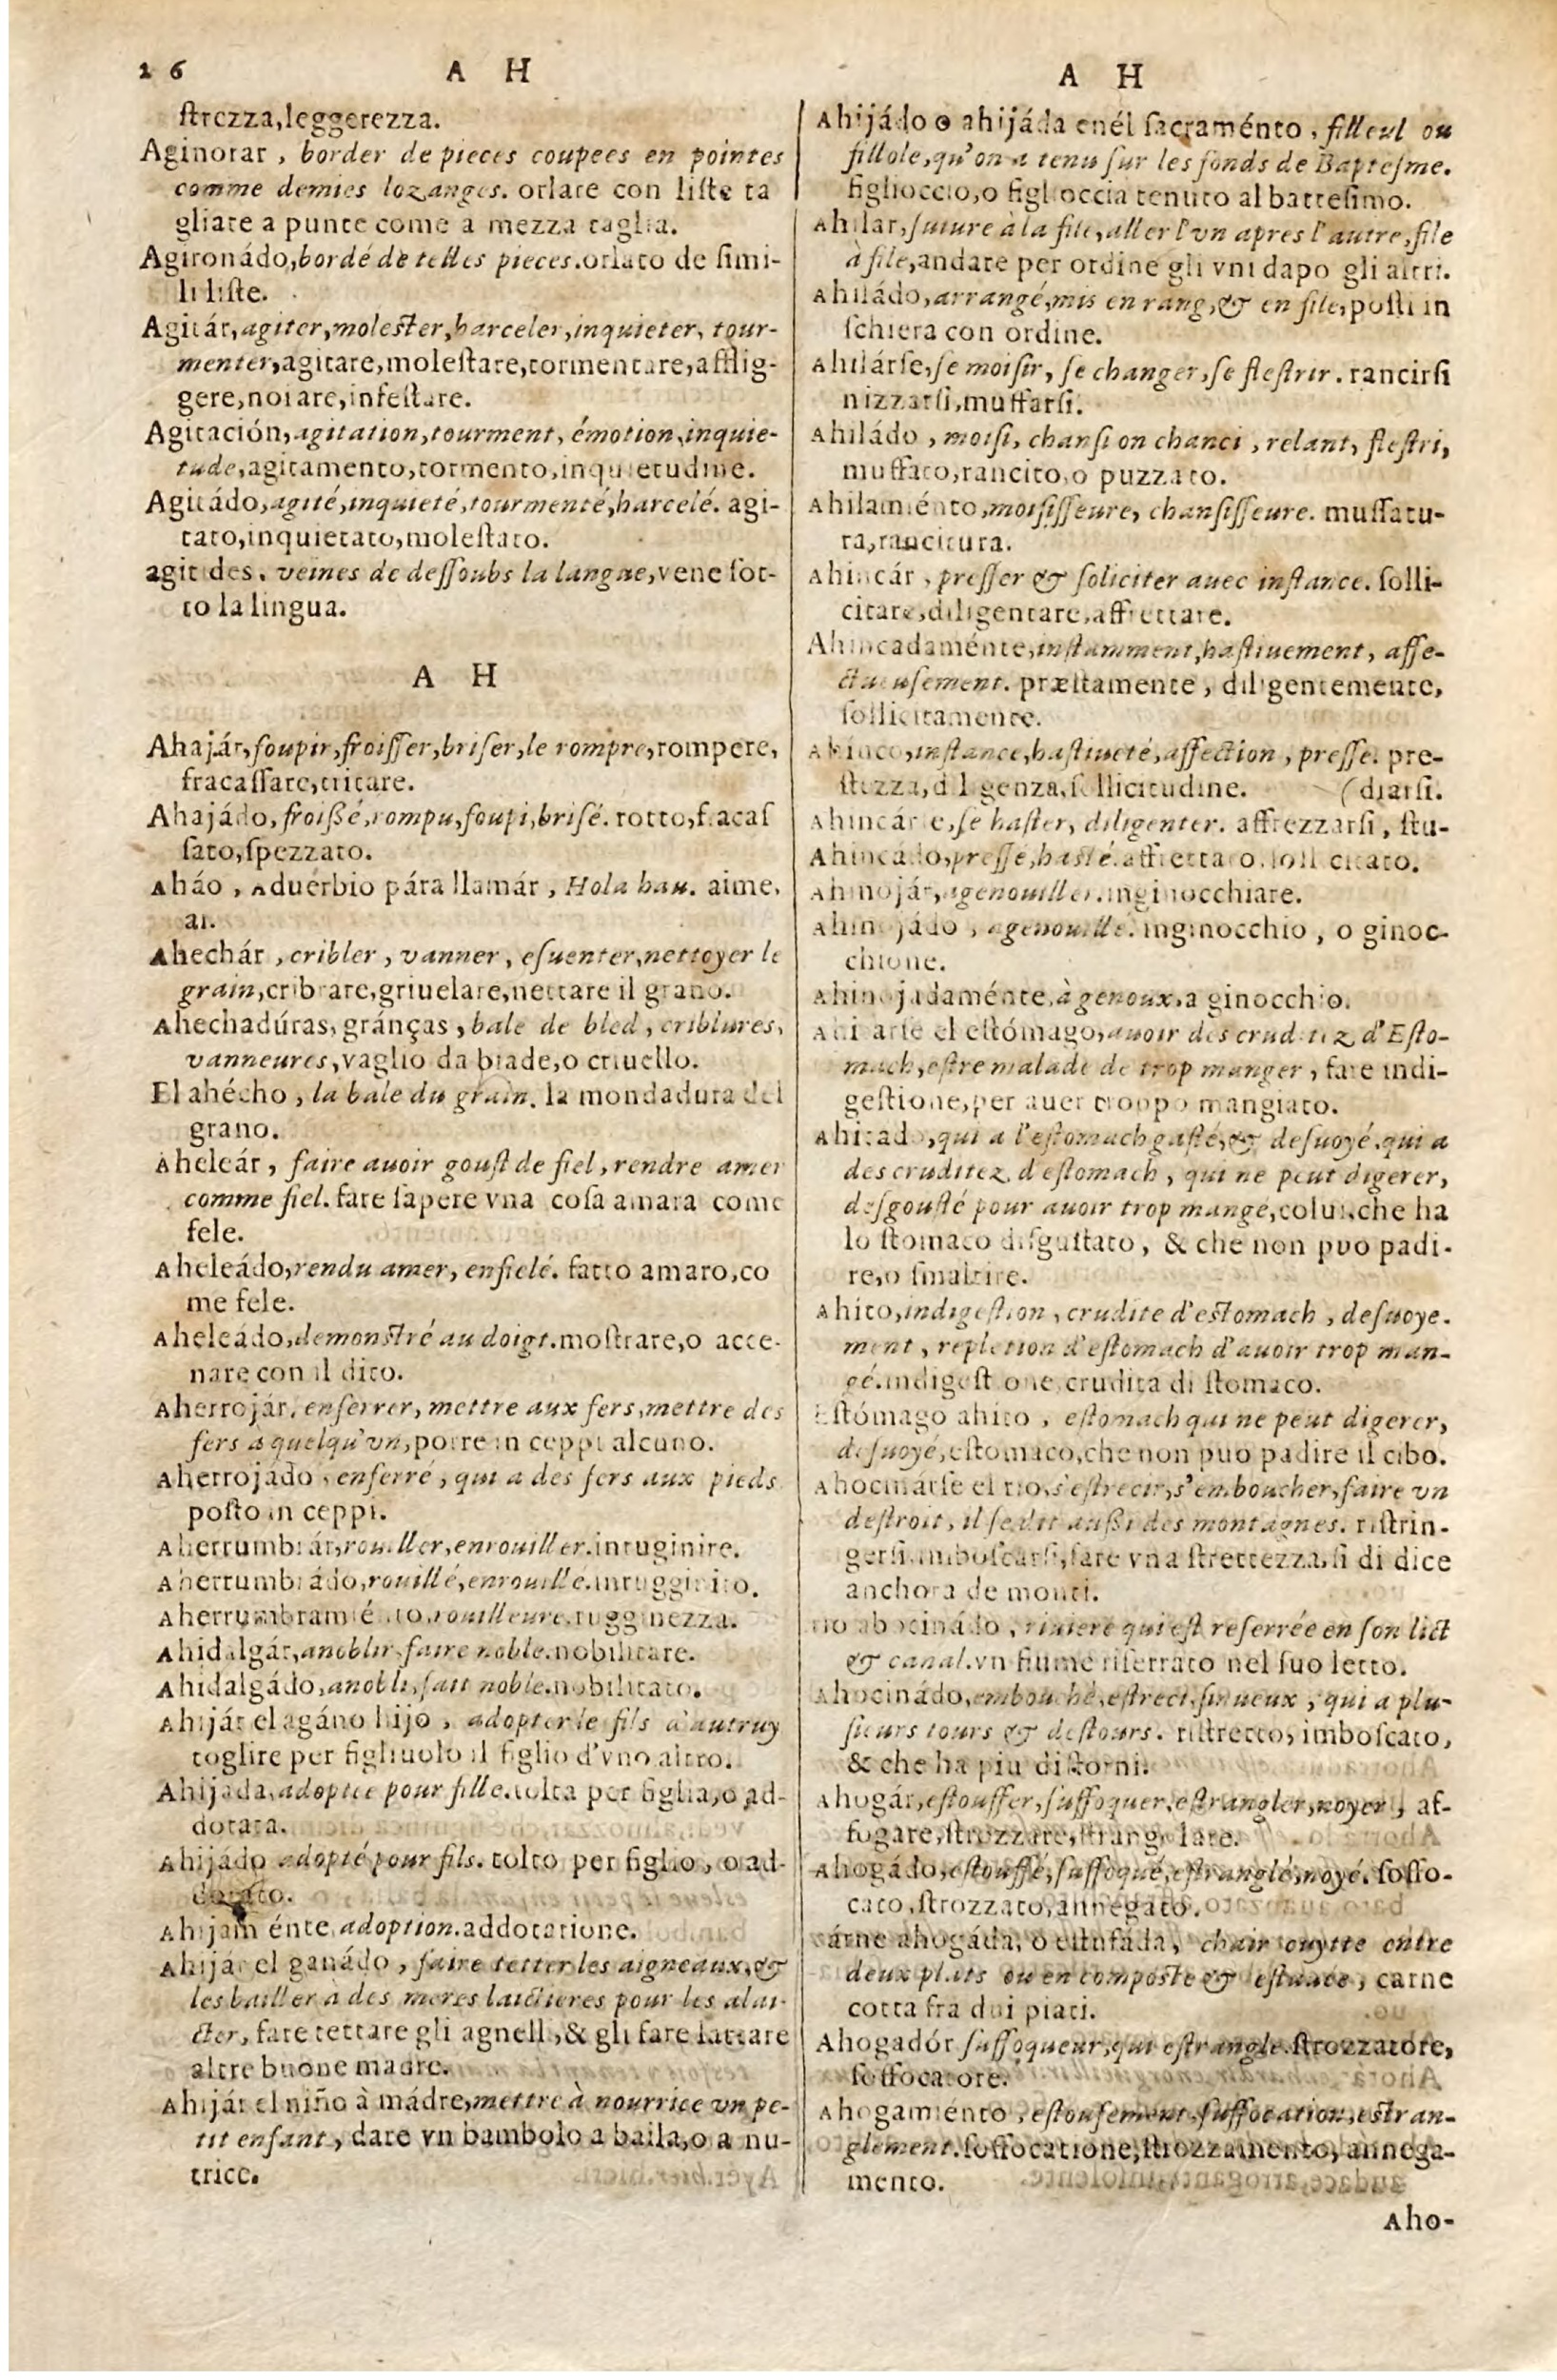 26 A H
ſtrezza,leggerezza.
Aginorar, border de pieces coupees en pointes
comme demies lozanges. orlare con liſte ta
gliate a punte come a mezza taglia.
Agironádo,bordé de telles pieces.orlato de ſimi-
li liſte.
Agitár,agiter,moleſter,harceler,inquieter, tour-
menter,agitare,moleſtare,tormentare,afflig-
gere,noiare,infeſtare.
Agitación,agitation,tourment, émotion,inquie-
tude,agitamento,tormento,inquietudine.
Agitádo,agité,inquieté,tourmenté,harcelé. agi-
tato,inquietato,moleſtato.
agit des, veines de deſſoubs la langue,vene ſot-
to la lingua.
A H
Ahajár,foupir,froiſſer,briſer,le rompre,rompere,
fracaſſare,tritare.
Ahajádo,froißé,rompu,foupi,briſé. rotto,fracaſ
ſato,ſpezzato.
Aháo, Aduérbio pára llamár, Hola hau. aime,
ai.
Ahechár, cribler, vanner, eſuenter,nettoyer le
grain,cribrare,griuelare,nettare il grano.
Ahechadúras, gránças, bale de bled, criblures,
vanneures,vaglio da biade,o criuello.
El ahécho, la bale du grain. la mondadura del
grano.
Aheleár, faire auoir gouſt de fiel, rendre amer
comme fiel. fare ſapere vna coſa amara come
fele.
Aheleádo,rendu amer, enfielé. fatto amaro,co
me fele.
Aheleádo,demonſtré au doigt.moſtrare,o acce-
nare con il dito.
Aherrojár, enferrer, mettre aux fers,mettre des
fers à quelqu'vn,porre in ceppi alcuno.
Aherrojádo, enferré, qui a des fers aux pieds
poſto in ceppi.
Aherrumbrár,rouiller,enrouiller.inruginire.
Aherrumbrádo,rouillé,enrouillé.inrugginito.
Aherrumbramiénto,rouilleure.rugginezza.
Ahidalgár,anoblir,faire noble.nobilitare.
Ahidalgádo,anobli,fait noble.nobilitato.
Ahijár el agáno hijo, adopter le fils d'autruy
toglire per figliuolo il figlio d'vno altro.
Ahijada,adoptée pour fille.tolta per figlia,o ad-
dotata.
Ahijádo adopté pour fils. tolto per figlio, o ad-
dotato.
Ahijamiénte,adoption.addotatione.
Ahijár el ganádo, faire tetter les aigneaux,&
les bailler à des meres laictieres pour les alai-
cter, fare tettare gli agnelli,& gli fare lattare
altre buone madre.
Ahijár el niño à mádre,mettre à nourrice vn pe-
tit enfant, dare vn bambolo a baila,o a nu-
trice.
A H
Ahijádo o ahijáda enél ſacraménto, filleul ou
fillole,qu'on a tenu ſur les fonds de Bapteſme.
figlioccio,o figlioccia tenuto al batteſimo.
Ahilar,ſuiure à la file,aller l'vn apres l'autre,file
à file,andare per ordine gli vni dapo gli altri.
Ahiládo,arrangé,mis en rang,& en file,poſti in
ſchiera con ordine.
Ahilárſe,ſe moiſir, ſe changer,ſe fleſtrir. rancirſi
nizzarſi,muffarſi.
Ahiládo, moiſi, chanſi on chanci, relant, fleſtri,
muffato,rancito,o puzzato.
Ahilamiénto,moiſiſſeure, chanſiſſeure. muffatu-
ra,rancitura.
Ahincár, preſſer & ſoliciter auec inſtance. ſolli-
citare,diligentare,affrettare.
Ahincadaménte,inſtamment,haſtiuement, affe-
ctueuſement. præſtamente, diligentemente,
ſollicitamente.
Ahínco,inſtance,haſtiueté,affection, preſſe. pre-
ſtezza,diligenza,ſollicitudine. (diarſi.
Ahincárſe,ſe haſter, diligenter. affrezzarſi, ſtu-
Ahincádo,preſſé,haſté.affrettato,ſollicitato.
Ahinojár,agenouiller.inginocchiare.
Ahinojádo, agenouillé. inginocchio, o ginoc-
chione.
Ahinojadaménte,à genoux.a ginocchio.
Ahitarſe el eſtómago,auoir des cruditez d'Eſto-
mach,eſtre malade de trop manger, fare indi-
geſtione,per auer troppo mangiato.
Ahitado,qui a l'eſtomach gaſté,& deſuoyé,qui a
des cruditez d'eſtomach, qui ne peut digerer,
deſgouſté pour auoir trop mangé,colui,che ha
lo ſtomaco diſguſtato, & che non puo padi-
re,o ſmaltire.
Ahito,indigeſtion, crudite d'eſtomach, deſuoye-
ment, repletion d'eſtomach d'auoir trop man-
gé.indigeſtione,crudita di ſtomaco.
Eſtómago ahito, eſtomach qui ne peut digerer,
deſuoyé,eſtomaco,che non puo padire il cibo.
Ahocinárſe el rio,s'eſtrecir,s'emboucher,faire vn
deſtroit, il ſe dit außi des montagnes. riſtrin-
gerſi,imboſcarſi,fare vna ſtrettezza,ſi di dice
anchora de monti.
rio ahocinádo, riuiere qui eſt reſerrée en ſon lict
& canal.vn fiume riſerrato nel ſuo letto.
Ahocinádo,embouché,eſtreci,ſinueux, qui a plu-
ſieurs tours & deſtours. riſtretto, imboſcato,
& che ha piu diſtorni.
Ahogár,eſtouffer,ſuffoquer,eſtrangler,noyer, af-
fogare,ſtrozzare,ſtrangolare.
Ahogádo,eſtouffé,ſuffoqué,eſtranglé,noyé. ſoffo-
cato,ſtrozzato,annegato.
cárne ahogáda, o eſtufáda, chair cuytte entre
deux plats ou en compoſte & eſtuuée, carne
cotta fra dui piati.
Ahogadór ſuffoqueur,qui eſtrangle.ſtrozzatore,
ſoffocatore.
Ahogamiénto, eſtoufement,ſuffocation,eſtran-
glement.ſoffocatione,ſtrozzamento, annega-
mento.
Aho-